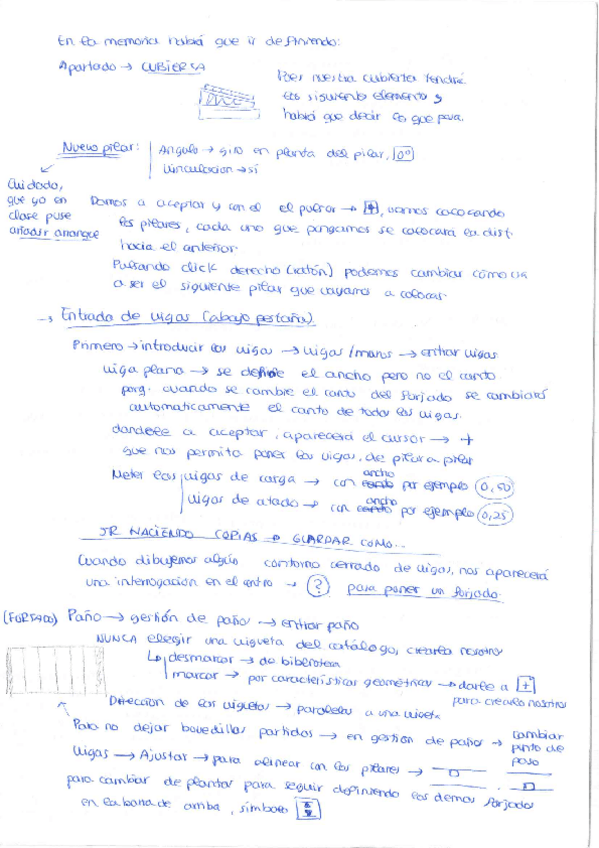 En la memoria habrá que ir definiendo:
Apartado → CUBIERTA
Pues nuestra cubierta tendrá
los siguiente elementos y
habrá que decir lo que pesa.
Nuevo pilar: Angulo → giro en planta del pilar, 0º
Vinculacion → sí
Cuidado,
que yo en
clase puse
añadir arranque
Damos a aceptar y con el el puntor → +, vamos colocando
los pilares, cada uno que pongamos se colocará la dist.
hacia el anterior.
Pulsando click derecho (ratón) podemos cambiar cómo va
a ser el siguiente pilar que vayamos a colocar.
→ Entrada de vigas (abajo pestaña)
Primero → introducir las vigas → vigas/muros → entrar vigas
viga plana → se define el ancho pero no el canto
porq. cuando se cambie el canto del forjado se cambiará
automaticamente el canto de todas las vigas.
dandole a aceptar, aparecerá el cursor → +
que nos permita poner las vigas, de pilar a pilar
Meter las vigas de carga → con canto ancho por ejemplo 0,50
vigas de atado → con canto ancho por ejemplo 0,25
IR HACIENDO COPIAS → GUARDAR COMO...
Cuando dibujemos algún contorno cerrado de vigas, nos aparecerá
una interrogación en el centro → ? para poner un forjado.
(FORJADO) Paño → gestión de paños → entrar paño
NUNCA elegir una vigueta del catálogo, crearla nosotros
desmarcar → de biblioteca
marcar → por características geométricas → darle a +
para crearla nosotros
Dirección de las viguetas → paralelas a una vigueta
Para no dejar bovedillas partidas → en gestión de paños → cambiar
punto de
paso
Vigas → Ajustar → para alinear con los pilares →
para cambiar de plantas para seguir definiendo los demas forjados
en la banda de arriba, símbolo